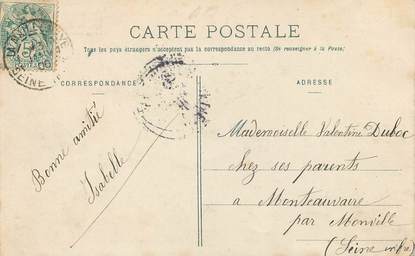 CARTE POSTALE
Tous les pays étrangers n'acceptent pas la correspondance au recto (Se renseigner à la Poste)
CORRESPONDANCE
ADRESSE
Bonne amitié
Isabelle
Mademoiselle Valentine Duboc
chez ses parents
à Monteauvaire
par Monville
(Seine infre)
SEINE